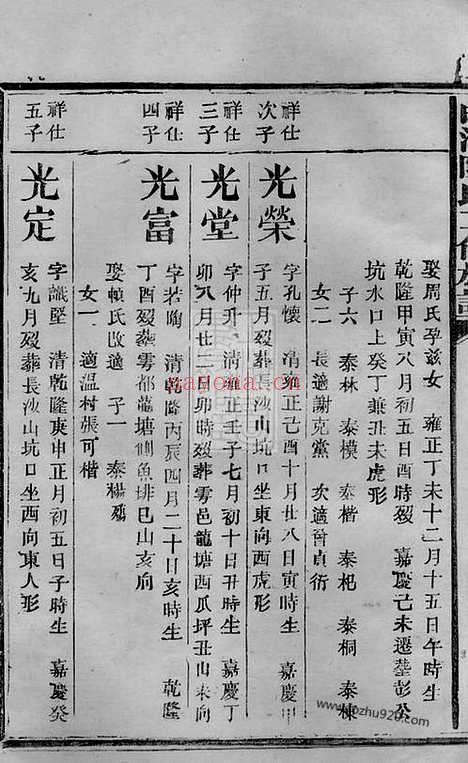 娶周氏孕茲女　雍正丁未十二月十五日午時生
乾隆甲寅八月初五日酉時歿　嘉慶己未遷塟彭公
坑水口上癸丁兼丑未虎形
子六　泰林　泰模　泰楷　泰杞　泰桐　泰棟
女二　長適謝克黨　次適曾貞衍
祥仕
次子
光榮
字孔懷　清雍正己酉十月廿八日寅時生　嘉慶甲
子五月歿葬長沙山坑口坐東向西虎形
祥仕
三子
光堂
字仲升　清雍正壬子七月初十日丑時生　嘉慶丁
卯八月廿二日卯時歿葬雩邑龍塘西瓜坪丑山未向
祥仕
四子
光富
字若陶　清乾隆丙辰四月二十日亥時生　乾隆
丁酉歿葬雩都龍塘側魚排巳山亥向
娶賴氏改適　子一　泰楊殤
女一　適溫村張可楷
祥仕
五子
光定
字識堅　清乾隆庚申正月初五日子時生　嘉慶癸
亥九月歿葬長沙山坑口坐西向東人形
nayona.cn
www.kongzhu920.com